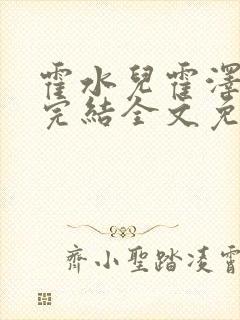 霍水兒霍澤
完結全文免
齊小聖踏凌霄